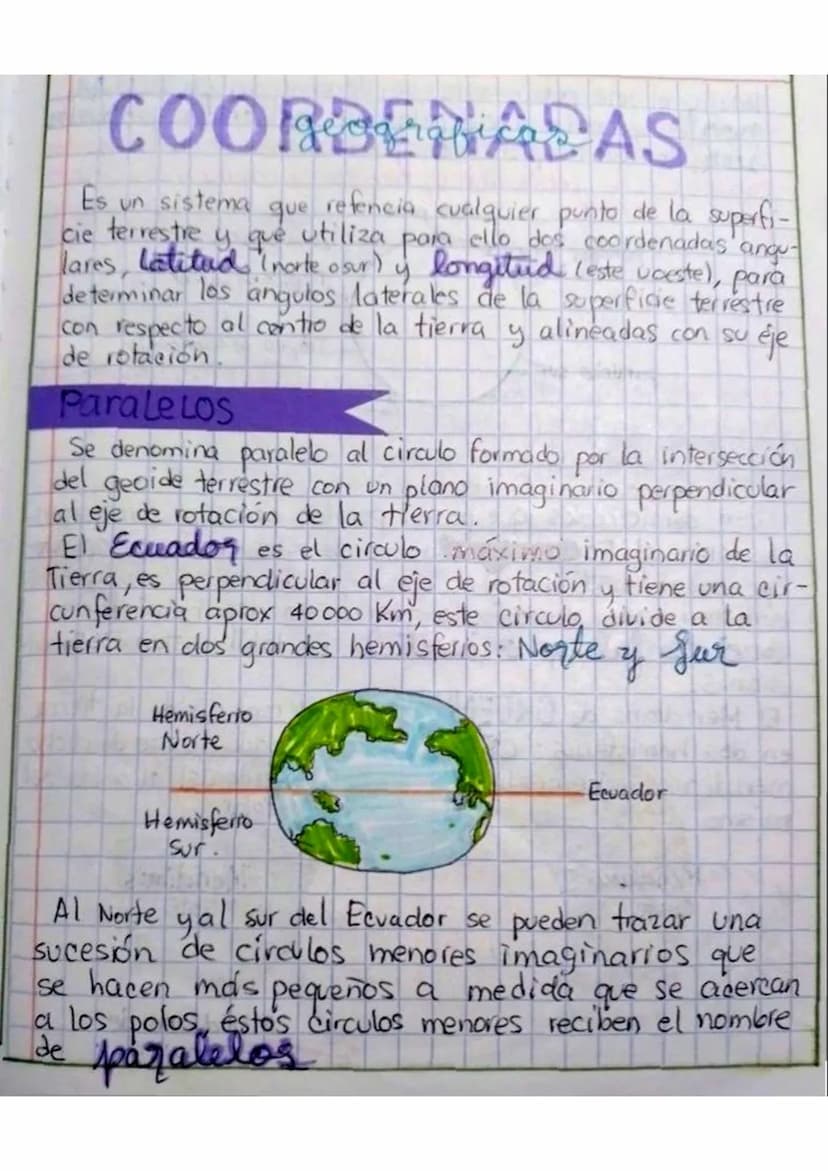 COORDENADAS
geográficas
Es un sistema que refencia cualquier punto de la superfi-
cie terrestre y que utiliza para ello dos coordenadas angu-
lares, latitud (norte o sur) y longitud (este uoeste), para
determinar los ángulos laterales de la superficie terrestre
con respecto al centro de la tierra y alineadas con su éje
de rotación.
Paralelos
Se denomina paralelo al circulo formado por la intersección
del geoide terrestre con un plano imaginario perpendicular
al eje de rotación de la tierra.
El Ecuador es el circulo máximo imaginario de la
Tierra, es perpendicular al eje de rotación y tiene una cir-
cunferencia aprox 40000 Km, este circulo divide a la
tierra en dos grandes hemisferios: Norte y Sur
Hemisferio
Norte
Ecuador
Hemisferio
Sur.
Al Norte y al sur del Ecuador se pueden trazar una
sucesión de círculos menores imaginarios que
se hacen más pequeños a medida que se acercan
a los polos, éstos circulos menores reciben el nombre
de paralelos